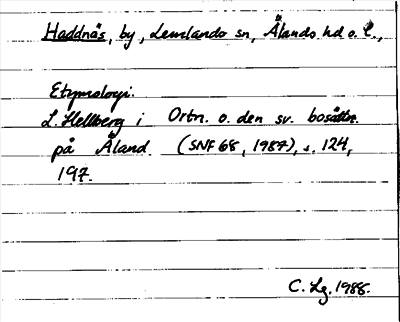 Haddnäs, by, Lemlands sn, Ålands hd o. l.,
Etymologi:
L. Hellberg i Ortn. o. den sv. bosättn.
på Åland (SNF 68, 1987), s. 124,
197.
C. Lg. 1988.